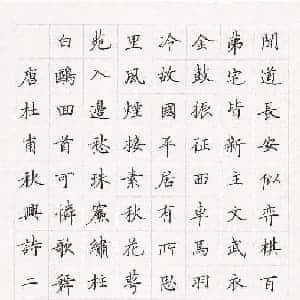 聞道長安似弈棋百
第宅皆新主文武衣
金鼓振征西車馬羽
冷故國平居有所思
里風煙接素秋花萼
苑入邊愁珠簾繡柱
白鷗回首可憐歌舞
唐杜甫秋興詩二